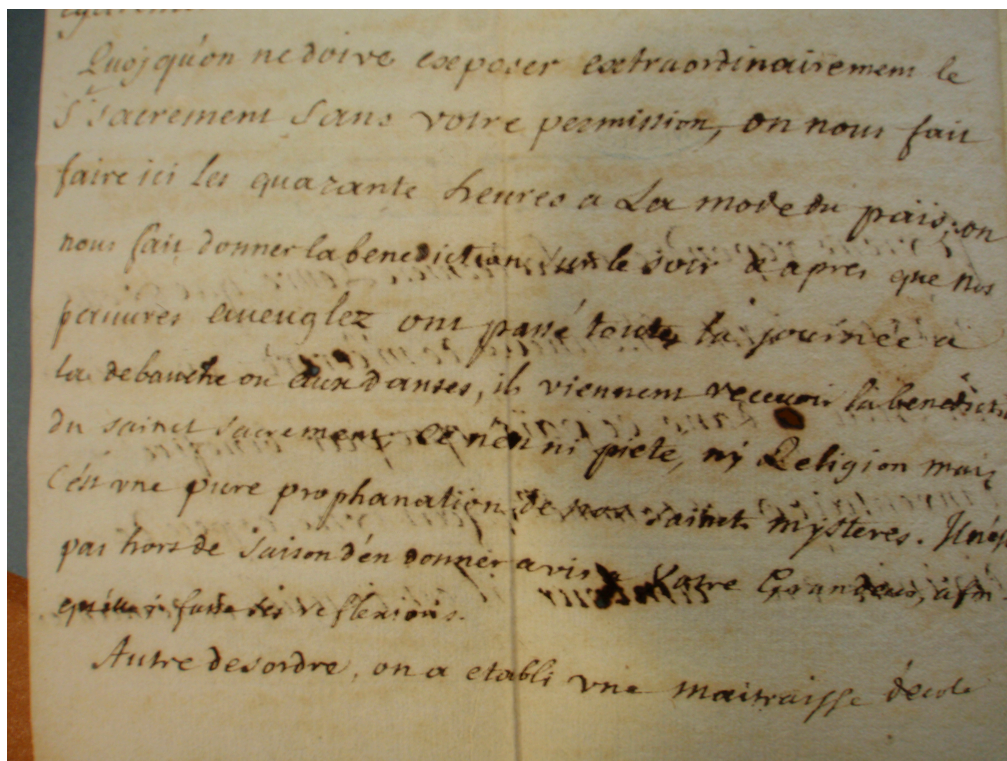 Quoj qu'on ne doive exposer extraordinairement le
St sacrement sans votre permission, on nous fait
faire ici les quarante heures a La mode du païs; on
nous fait donner la benediction sur le soir & apres que nos
pauvres aveuglez ont passé toute la journée a
la debauche ou aux danses, ils viennent recevoir la benedicti
du sainct sacrement ce n'est ni pieté, nj Religion mais
C'est vne pure prophanation de nos saincts mysteres. Il n'est
pas hors de saison d'en donner avis a Votre Grandeur, afin
qu'elle i fasse ses reflexions.
Autre desordre, on a etabli vne maitraisse d'ecole